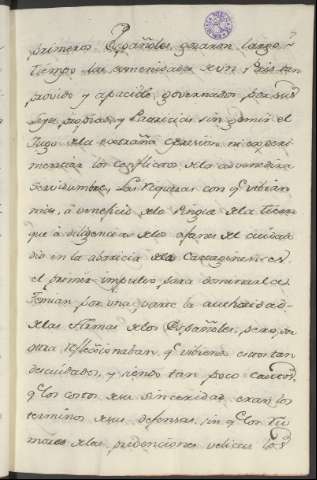 primeros Españoles, gozaron largo
tiempo las amenidades de un Pais tan
provido y apacible governados por sus
Leyes propias, y Patricias sin gemir el
Yugo de la extraña opresion, ni experi
mentar los conflictos de la advenediza
servidumbre, Las riquezas con q.e vibian
mas, à beneficio de lo Pingue de la tierra
que à diligencias de los afanes del cuidado
dio en la abaricia de los Cartagineneses
el primer impulso para dominarles
Temian por una parte la authoridad
de las Armas de los Españoles, pero, de
otra reflexionaban, q.e vibiendo estos tan
descuidados, y siendo tan poco cautos,
q.e los cotos de su sinceridad eran los
terminos de sus defensas, sin q.e los Tu
mores de las prebenciones velicas los